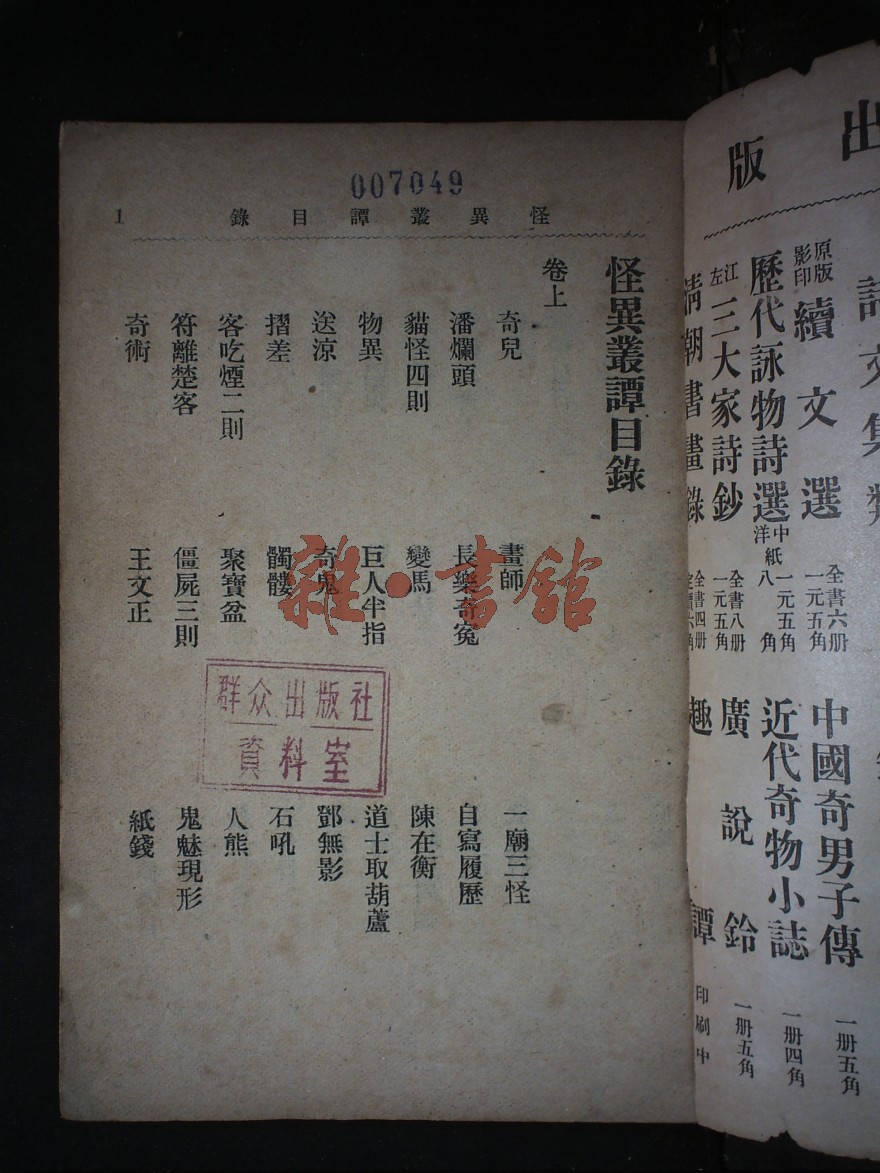 007049
怪異叢譚目錄
1
怪異叢譚目錄
卷上
奇兒
畫師
一廟三怪
潘爛頭
長樂奇冤
自寫履歷
貓怪四則
變馬
陳在衡
物異
巨人半指
道士取葫蘆
送涼
奇鬼
鄧無影
摺差
髑髏
石吼
客吃煙二則
聚寶盆
人熊
符離楚客
僵屍三則
鬼魅現形
奇術
王文正
紙錢
雜·書館
群众出版社
資料室
出版
詩文集類
原版影印 續文選 全書六册 一元五角
歷代詠物詩選 中紙 一元五角 洋紙 八角
江左三大家詩鈔 全書八册 一元五角
清朝書畫錄 全書四册
中國奇男子傳 一册五角
近代奇物小誌 一册四角
廣說鈴 一册五角
趣譚 印刷中